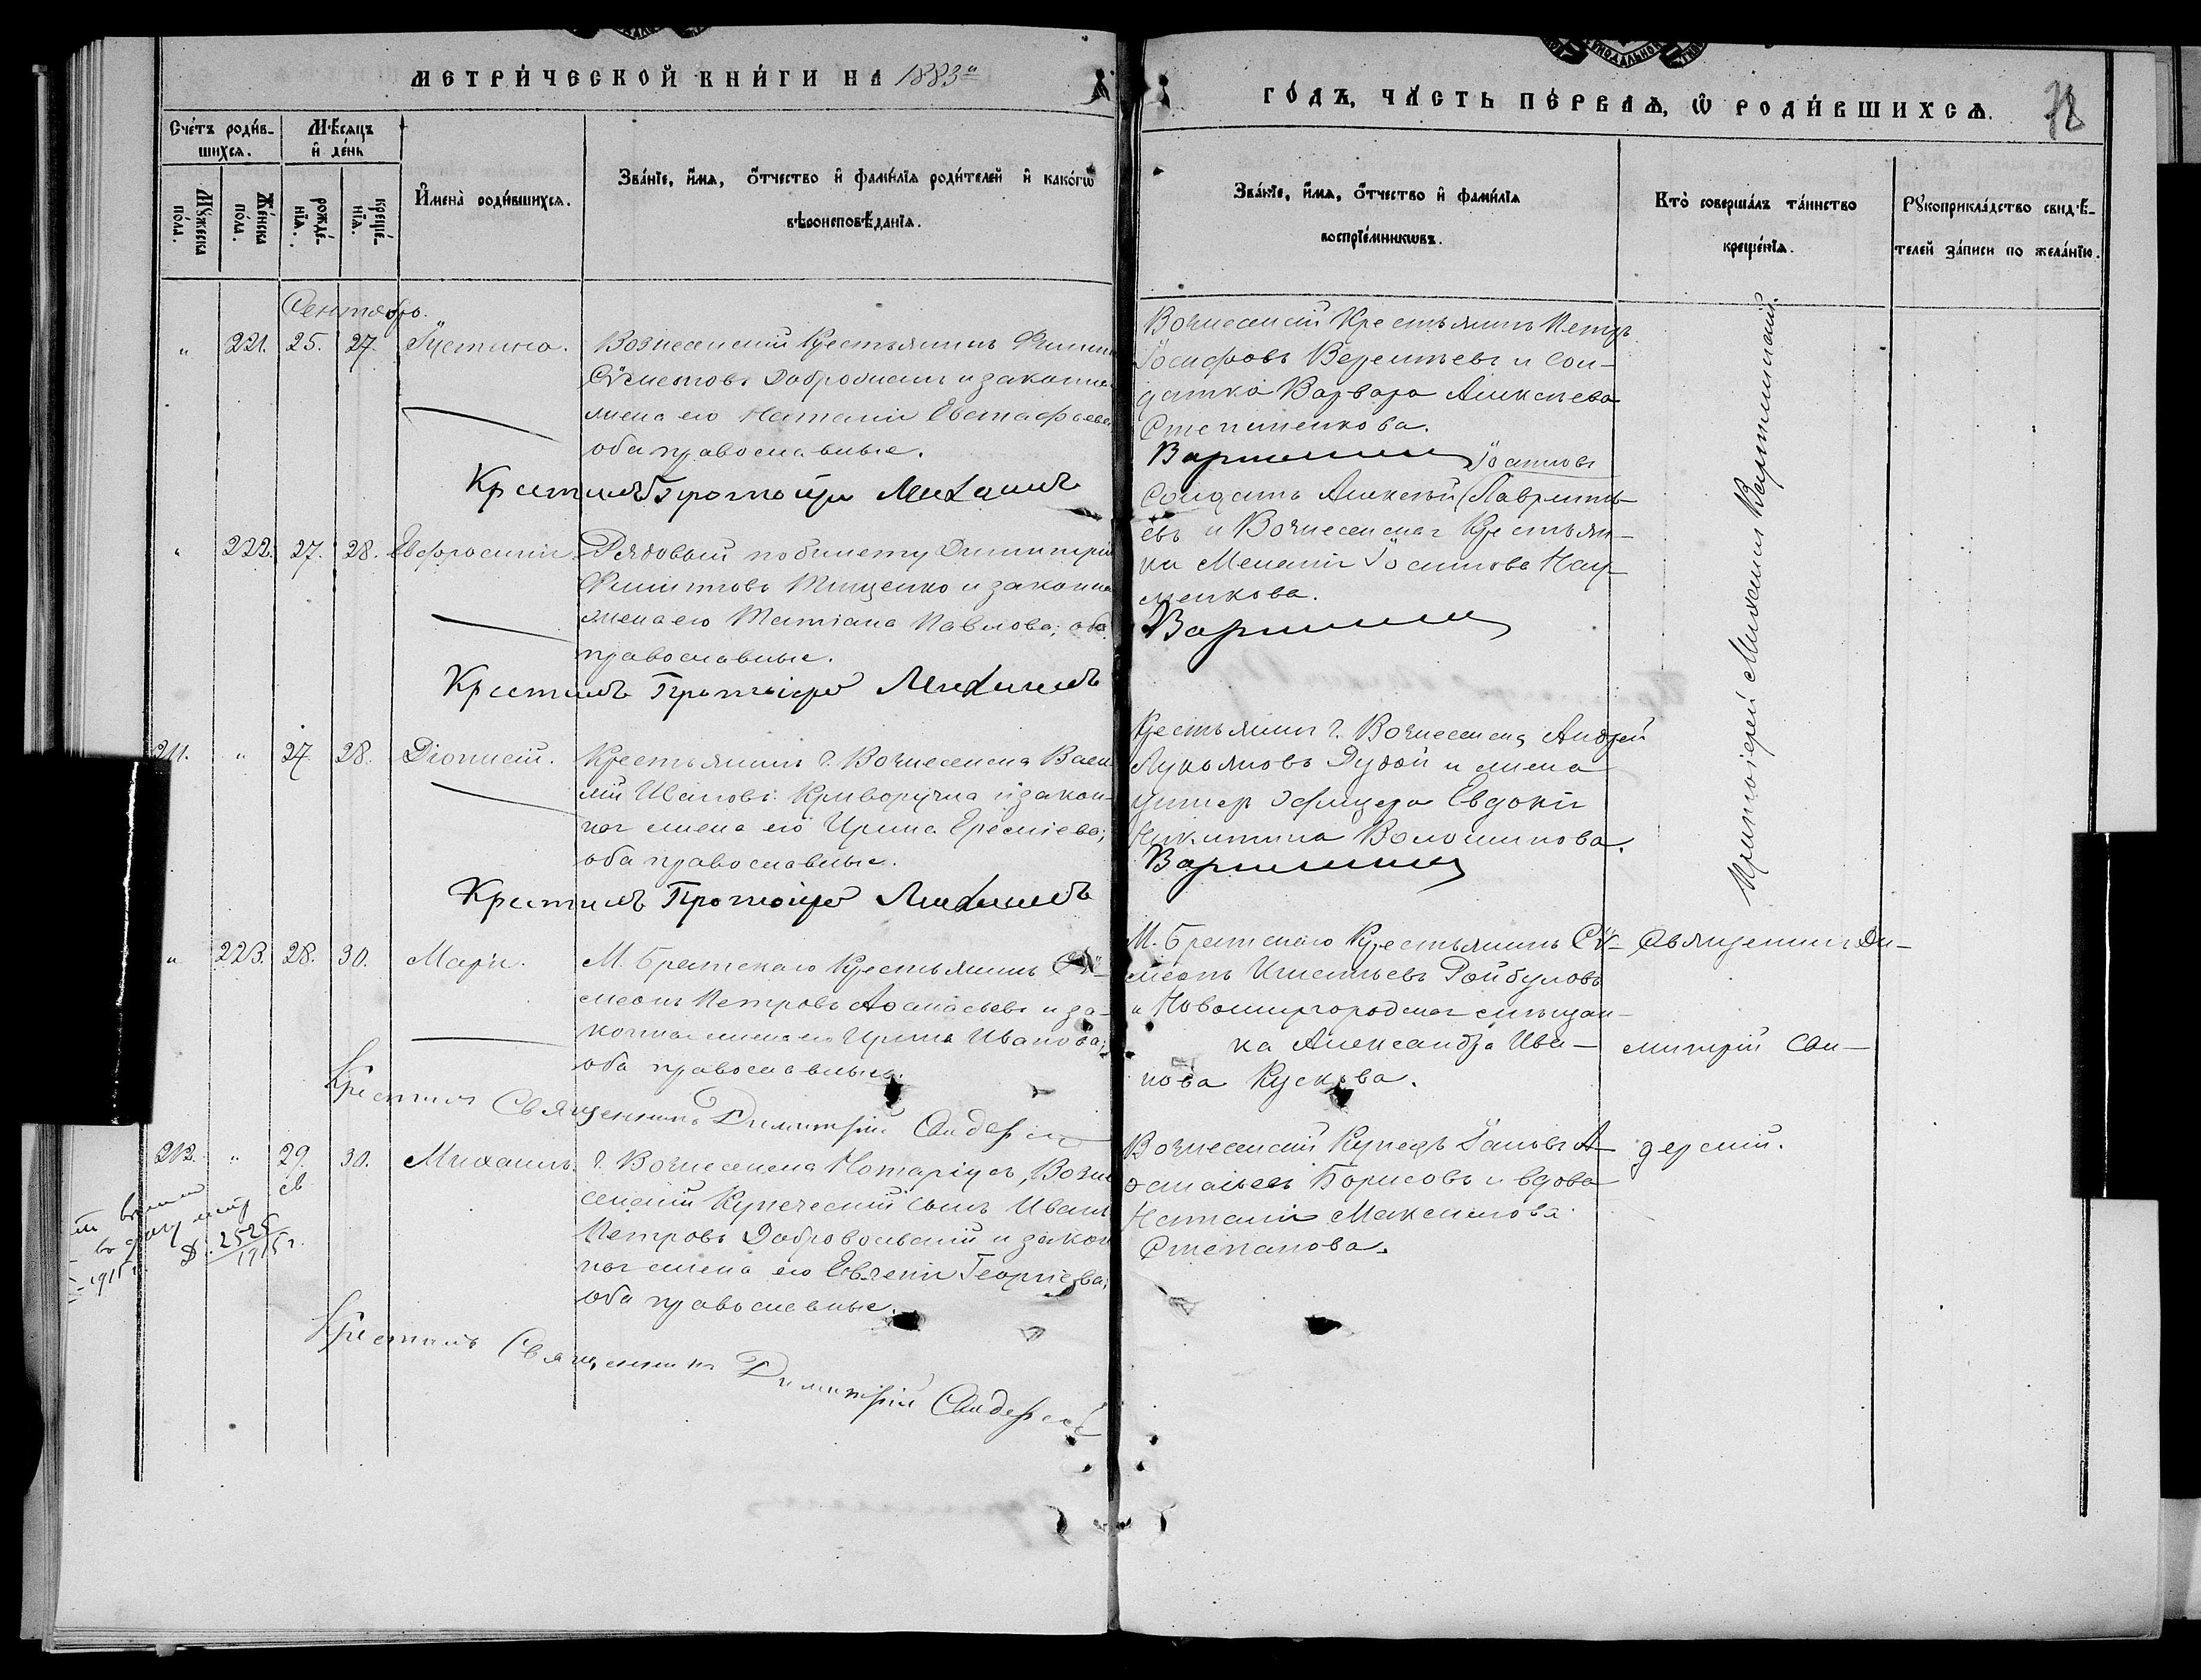 МЕТРИ́ЧЕСКОЙ КНИ́ГИ НА 1883й
ГО́ДЪ, ЧА́СТЬ ПЕ́РВАѦ, Ѡ҆ РОДИ́ВШИХСѦ.
72
Сче́тъ роди́в-
шихсѧ.
Мѣ́сяцъ
и҆ де́нь
Мꙋ́жеска
по́ла.
Же́нска
по́ла.
рожде́-
нїѧ.
креще́-
нїѧ.
И҆мена̀ роди́вшихсѧ.
Зва́нїе, и҆́мѧ, ѻ҆́тчество и҆ фами́лїѧ роди́телей и҆ како́гѡ
вѣроисповѣ́данїѧ.
Зва́нїе, и҆́мѧ, ѻ҆́тчество и҆ фами́лїѧ
воспрїе́мникѡвъ.
Кто̀ соверша́лъ та́инство
креще́нїѧ.
Рꙋкоприкла́дство свидѣ́-
телей за́писи по жела́нїю.
Сентябрь.
" 221. 25. 27. Іустина.
Вознесенскій Крестьянинъ Филип
Сѵмеоновъ и законна
жена его Наталія Евстафьева
оба православные.
Крестилъ Протоіерей Михаилъ
Вознесенскій Крестьянинъ Петръ
Іосифовъ Верентьевъ и сол-
датка Варвара Алексѣева
Степаненкова.
" 222. 27. 28. Евфросинія.
Рядовый по билету Димитрій
Филиповъ Тищенко и законна
жена его Татіана Павлова; оба
православные.
Крестилъ Протоіерей Михаилъ
Іоанновъ
Солдатъ Алексѣй Лаврентьевъ
и Вознесенская Крестьян-
ка Меланія Іоаннова Нау-
менкова.
211. " 27. 28. Діонисій.
Крестьянинъ г. Вознесенска Васи
лій Ивановъ Криворучка и закон-
ная жена его Ирина
оба православные.
Крестилъ Протоіерей Михаилъ
Крестьянинъ г. Вознесенска Андрей
Лукьяновъ Дудой и жена
унтер офицера Евдокія
Никитина Волошинова.
Протоіерей Михаилъ
" 223. 28. 30. Марія.
М. Братскаго Крестьянинъ Сѵ-
меонъ Петровъ Аѳанасьевъ и за-
конная жена его Ирина Иванова;
оба православные.
Крестилъ Священникъ Димитрій Сандерскій
М. Братскаго Крестьянинъ Сѵ-
меонъ Игнатьевъ Гойбуловъ
и Новомиргородская мѣщан-
ка Александра Ива-
нова Кускова.
Священникъ Ди-
митрій Сан-
дерскій.
212. " 29. 30. Михаилъ.
г. Вознесенска Нотаріусъ, Возне
сенскій Купеческій сынъ Иванъ
Петровъ Добровольскій и закон
ная жена его Евгенія Георгіева;
оба православные.
Крестилъ Священникъ Димитрій Сандерскій
Вознесенскій Купецъ Іаковъ А-
ѳанасьевъ Борисовъ и вдова
Наталія Максимова
Степанова.
св
2525
1915 г.
1915 г.